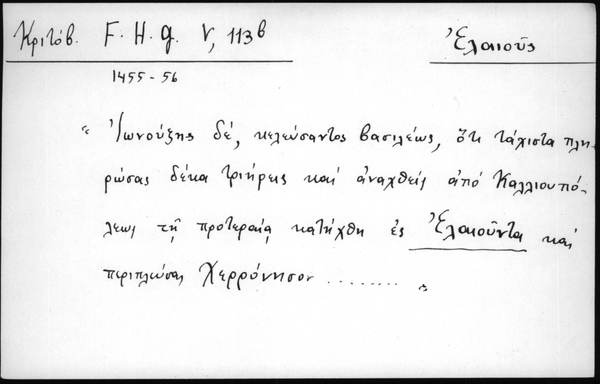 Κριτόβ. F. H. g. V, 113b
Ἐλαιοῦς
1455-56
"Ἰωνούζης δέ, κελεύσαντος βασιλέως, ὅτι τάχιστα πλη-
ρώσας δέκα τριήρεις καί ἀναχθείς ἀπό Καλλιουπό-
λεως τῇ προτεραίᾳ κατήχθη ἐς Ἐλαιοῦντα καί
περιπλεύσας Χερρόνησον ........ "